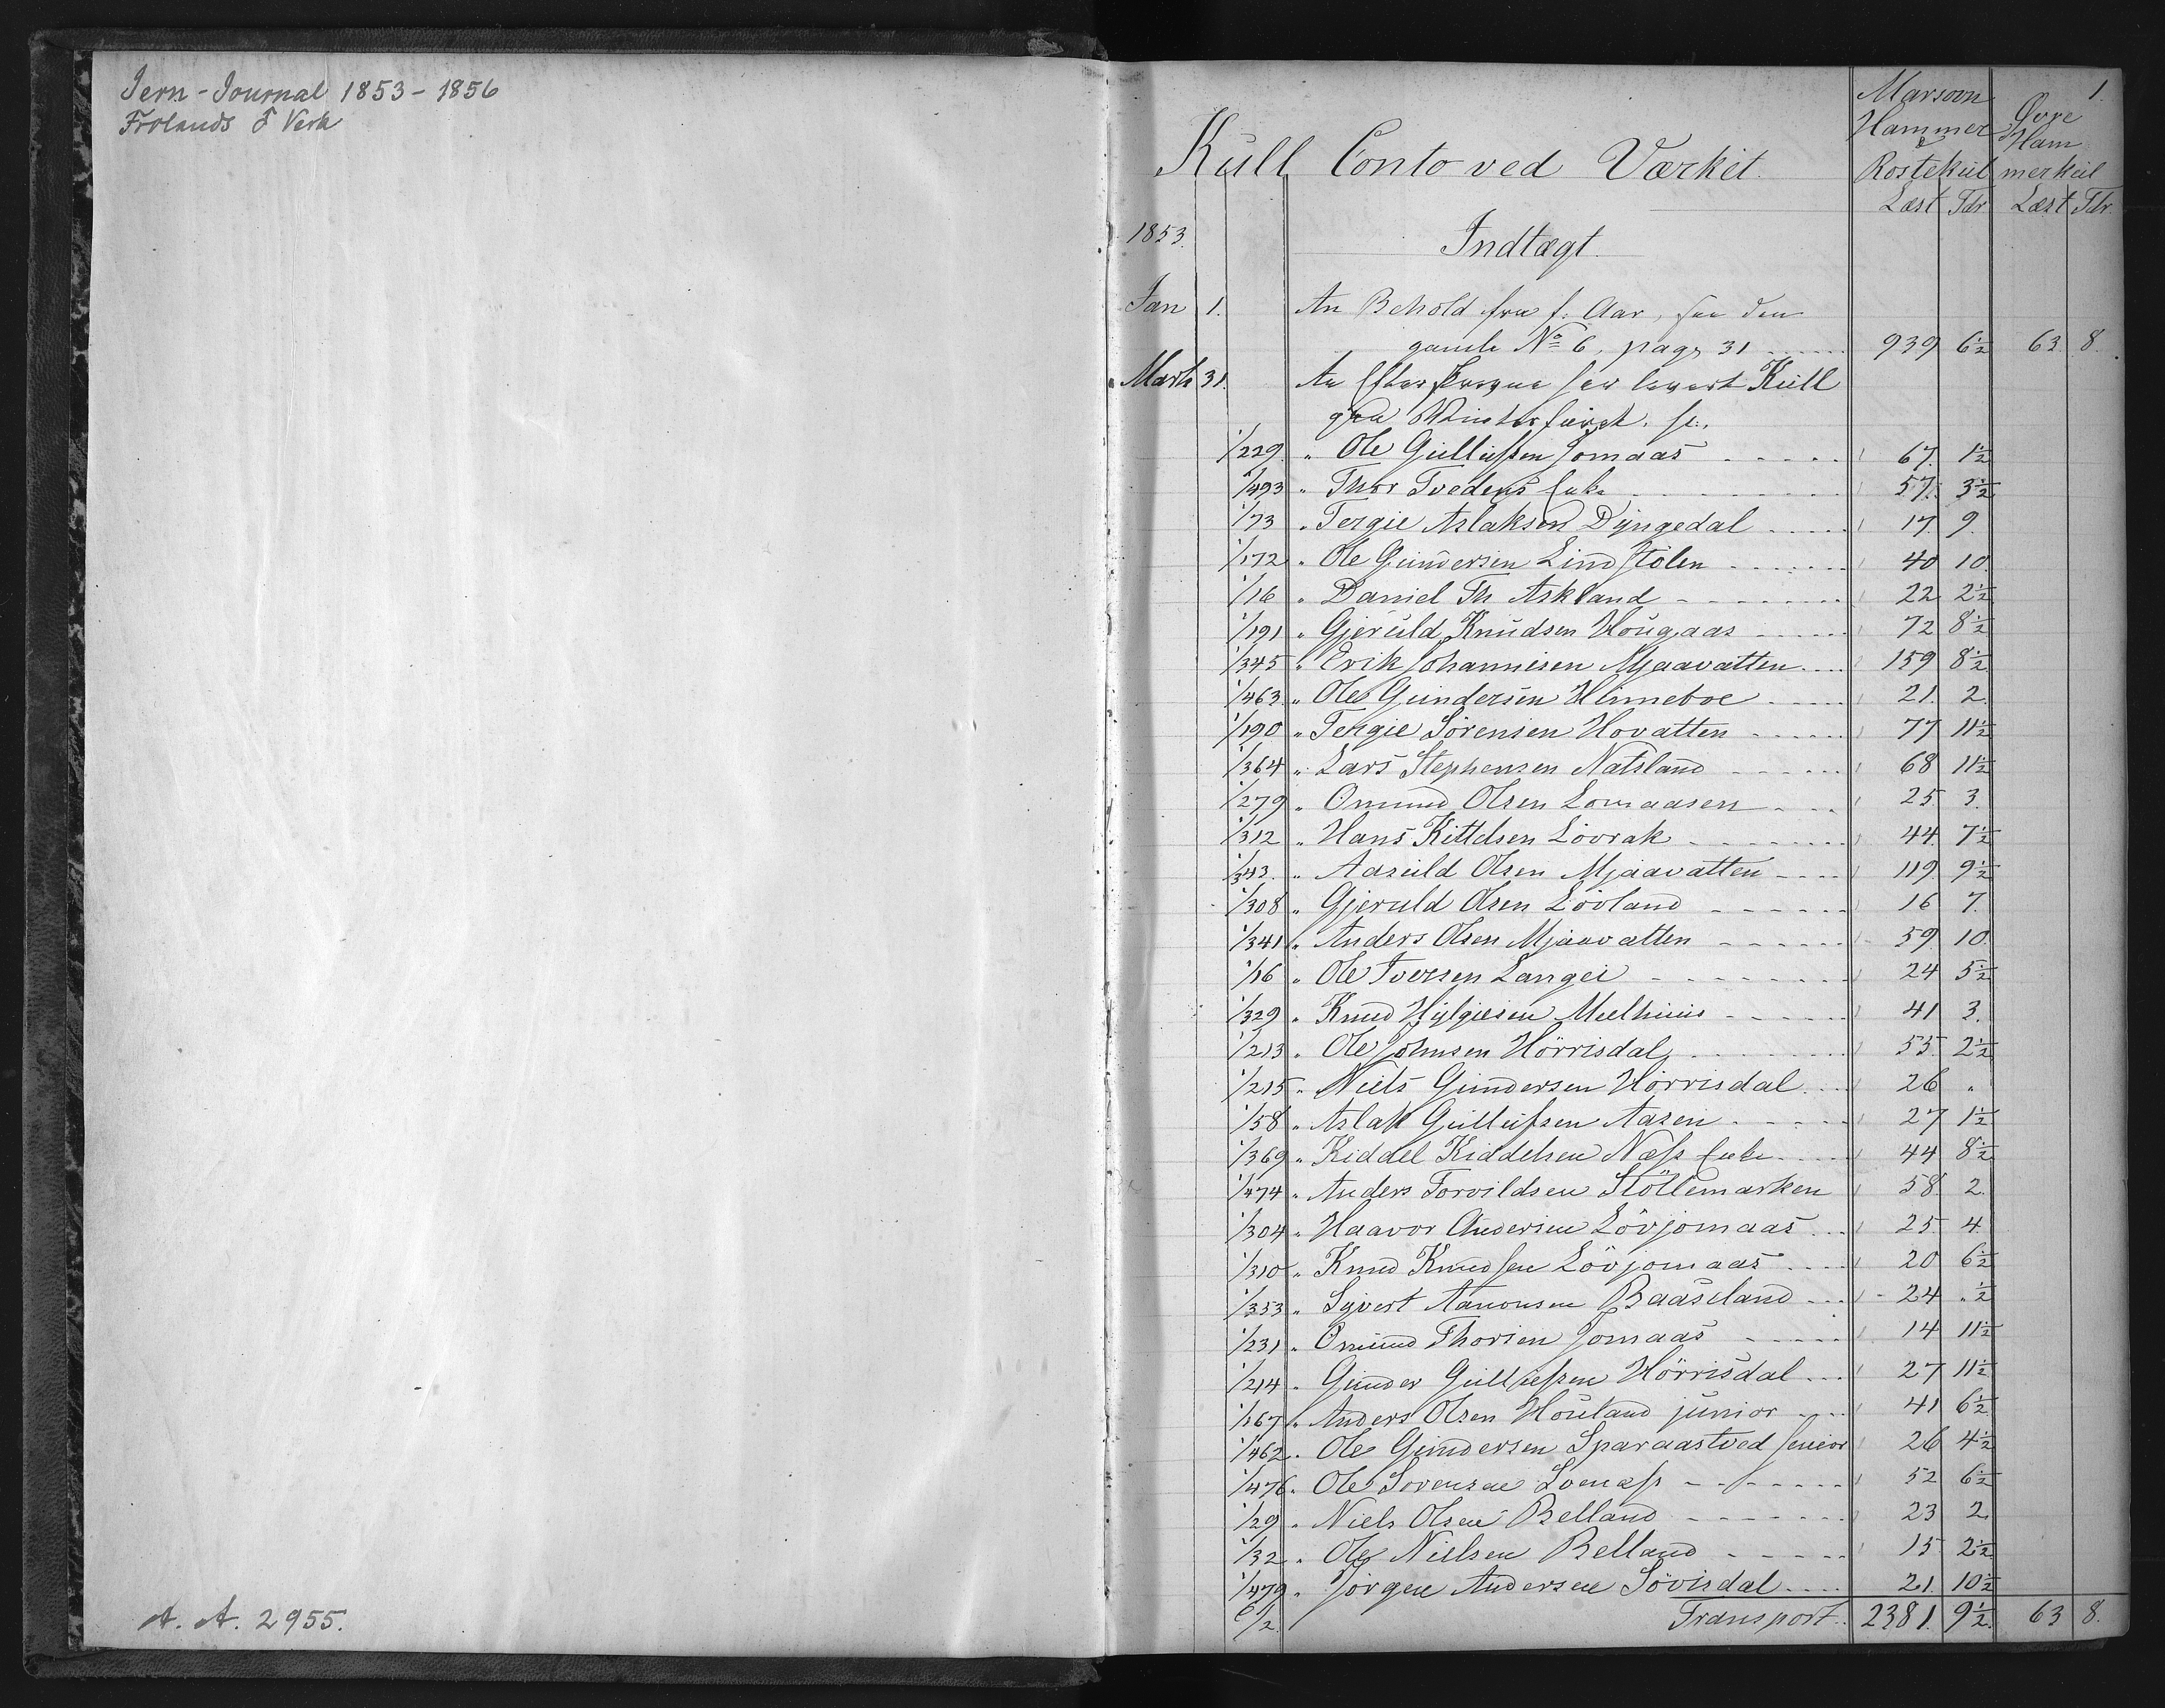 Jern-Journal 1853-1856
Frolands J Verk
A. A. 2955.
1.
Kull Conto ved Værket.
Marsovn Hammer & Rostekul
Øvre Ham merkul
Læst Tdr Læst Tdr
1853.
Indtægt.
Jan 1. An Behold fra f. Aar, fra den
gamle No 6, pag. 31 939 6½ 63. 8.
Marts 31. An Kull
1/229. " Ole Gullufsen Jomaas 67. 1½
1/493 " Thor Tvedens Enke 57. 3½
1/73 " Tergie Aslaksen Dyngedal 17. 9.
1/172 " Ole Gundersen Lindstölen 40 10.
1/16 " Daniel Th Askland 22 2½
1/191 " Gjeruld Knudsen Hougaas 72 8½
1/345 " Erik Johannesen Mjaavatten 159 8½
1/463. " Ole Gundersen Hinneboe 21. 2.
1/190 " Tergie Sörensen Hovatten 77 11½
1/364 " Lars Stephensen Natsland 68 11½
1/279 " Omund Olsen Lomaasen 25 3.
1/312 " Hans Kittelsen Lövrak 44. 7½
1/343. " Aasuld Olsen Mjaavatten 119. 9½
1/308 " Gjeruld Olsen Lövland 16 7.
1/341 " Anders Olsen Mjaavatten 59 10.
1/16 " Ole Iversen Langei 24 5½
1/329 " Knud Hylgiesen Meelhuus 41 3.
1/213 " Ole Johnsen Hörrisdal 55. 2½
1/215 " Niels Gundersen Hörrisdal 26 "
1/58 " Aslak Gullufsen Aasen 27 1½
1/369 " Kiddel Kiddelsen Næss Enke 44 8½
1/474 " Anders Torvildsen Stöllemarken 58. 2.
1/304 " Haavor Andersen Lövjomaas 25. 4.
1/310 " Knud Knudsen Lövjomaas 20 6½
1/353 " Syvert Aanonsen Baaseland 24 "½
1/231 " Omund Thorsen Jomaas 14 11½
1/214 " Gunder Gullufsen Hörrisdal 27 11½
1/167 " Anders Olsen Houland junior 41 6½
1/462. " Ole Gundersen Sparaastved senior 26 4½
1/476. " Ole Sorensen 52 6½
1/29 " Niels Olsen Belland 23 2.
1/32 " Ole Nielsen Belland 15 2½
1/479 " Jörgen Andersen Lövisdal 21. 10½
6/2. Transport 2381. 9½ 63 8.